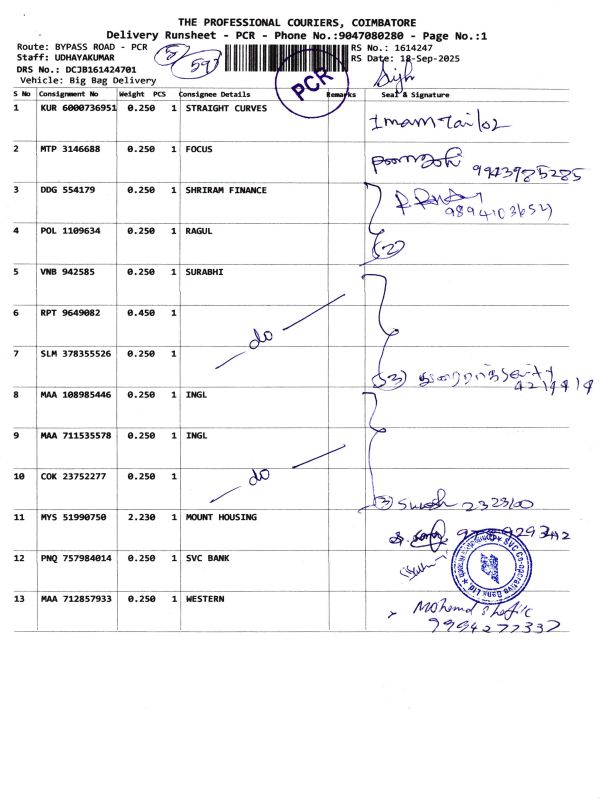 THE PROFESSIONAL COURIERS, COIMBATORE
Delivery Runsheet - PCR - Phone No.:9047080280 - Page No.:1
Route: BYPASS ROAD - PCR
RS No.: 1614247
Staff: UDHAYAKUMAR
RS Date: 18-Sep-2025
DRS No.: DCJB161424701
Vehicle: Big Bag Delivery
PCR
S No Consignment No Weight PCS Consignee Details Remarks Seal & Signature
1 KUR 6000736951 0.250 1 STRAIGHT CURVES Imam Tailor
2 MTP 3146688 0.250 1 FOCUS
3 DDG 554179 0.250 1 SHRIRAM FINANCE
4 POL 1109634 0.250 1 RAGUL (2)
5 VNB 942585 0.250 1 SURABHI
6 RPT 9649082 0.450 1 do
7 SLM 378355526 0.250 1
8 MAA 108985446 0.250 1 INGL
9 MAA 711535578 0.250 1 INGL
10 COK 23752277 0.250 1 do
(3) Suresh 2323100
11 MYS 51990750 2.230 1 MOUNT HOUSING
12 PNQ 757984014 0.250 1 SVC BANK
SVC Co-operative Bank Ltd
13 MAA 712857933 0.250 1 WESTERN Mohamed Shafik
9994277337